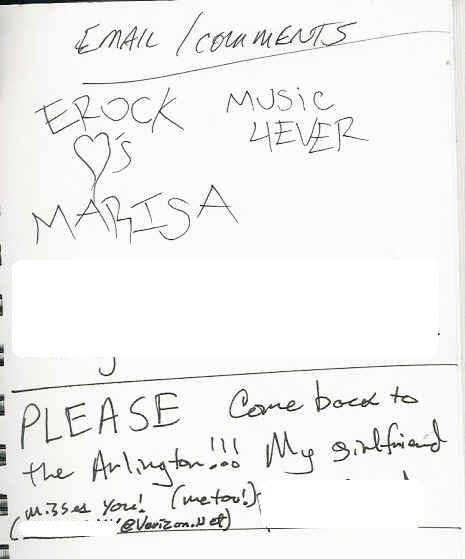 EMAIL / COMMENTS
EROCK MUSIC
♡'s 4EVER
MARISA
PLEASE Come back to
the Arlington!!! My girlfriend
misses you! (me too!)
@Verizon.Net)